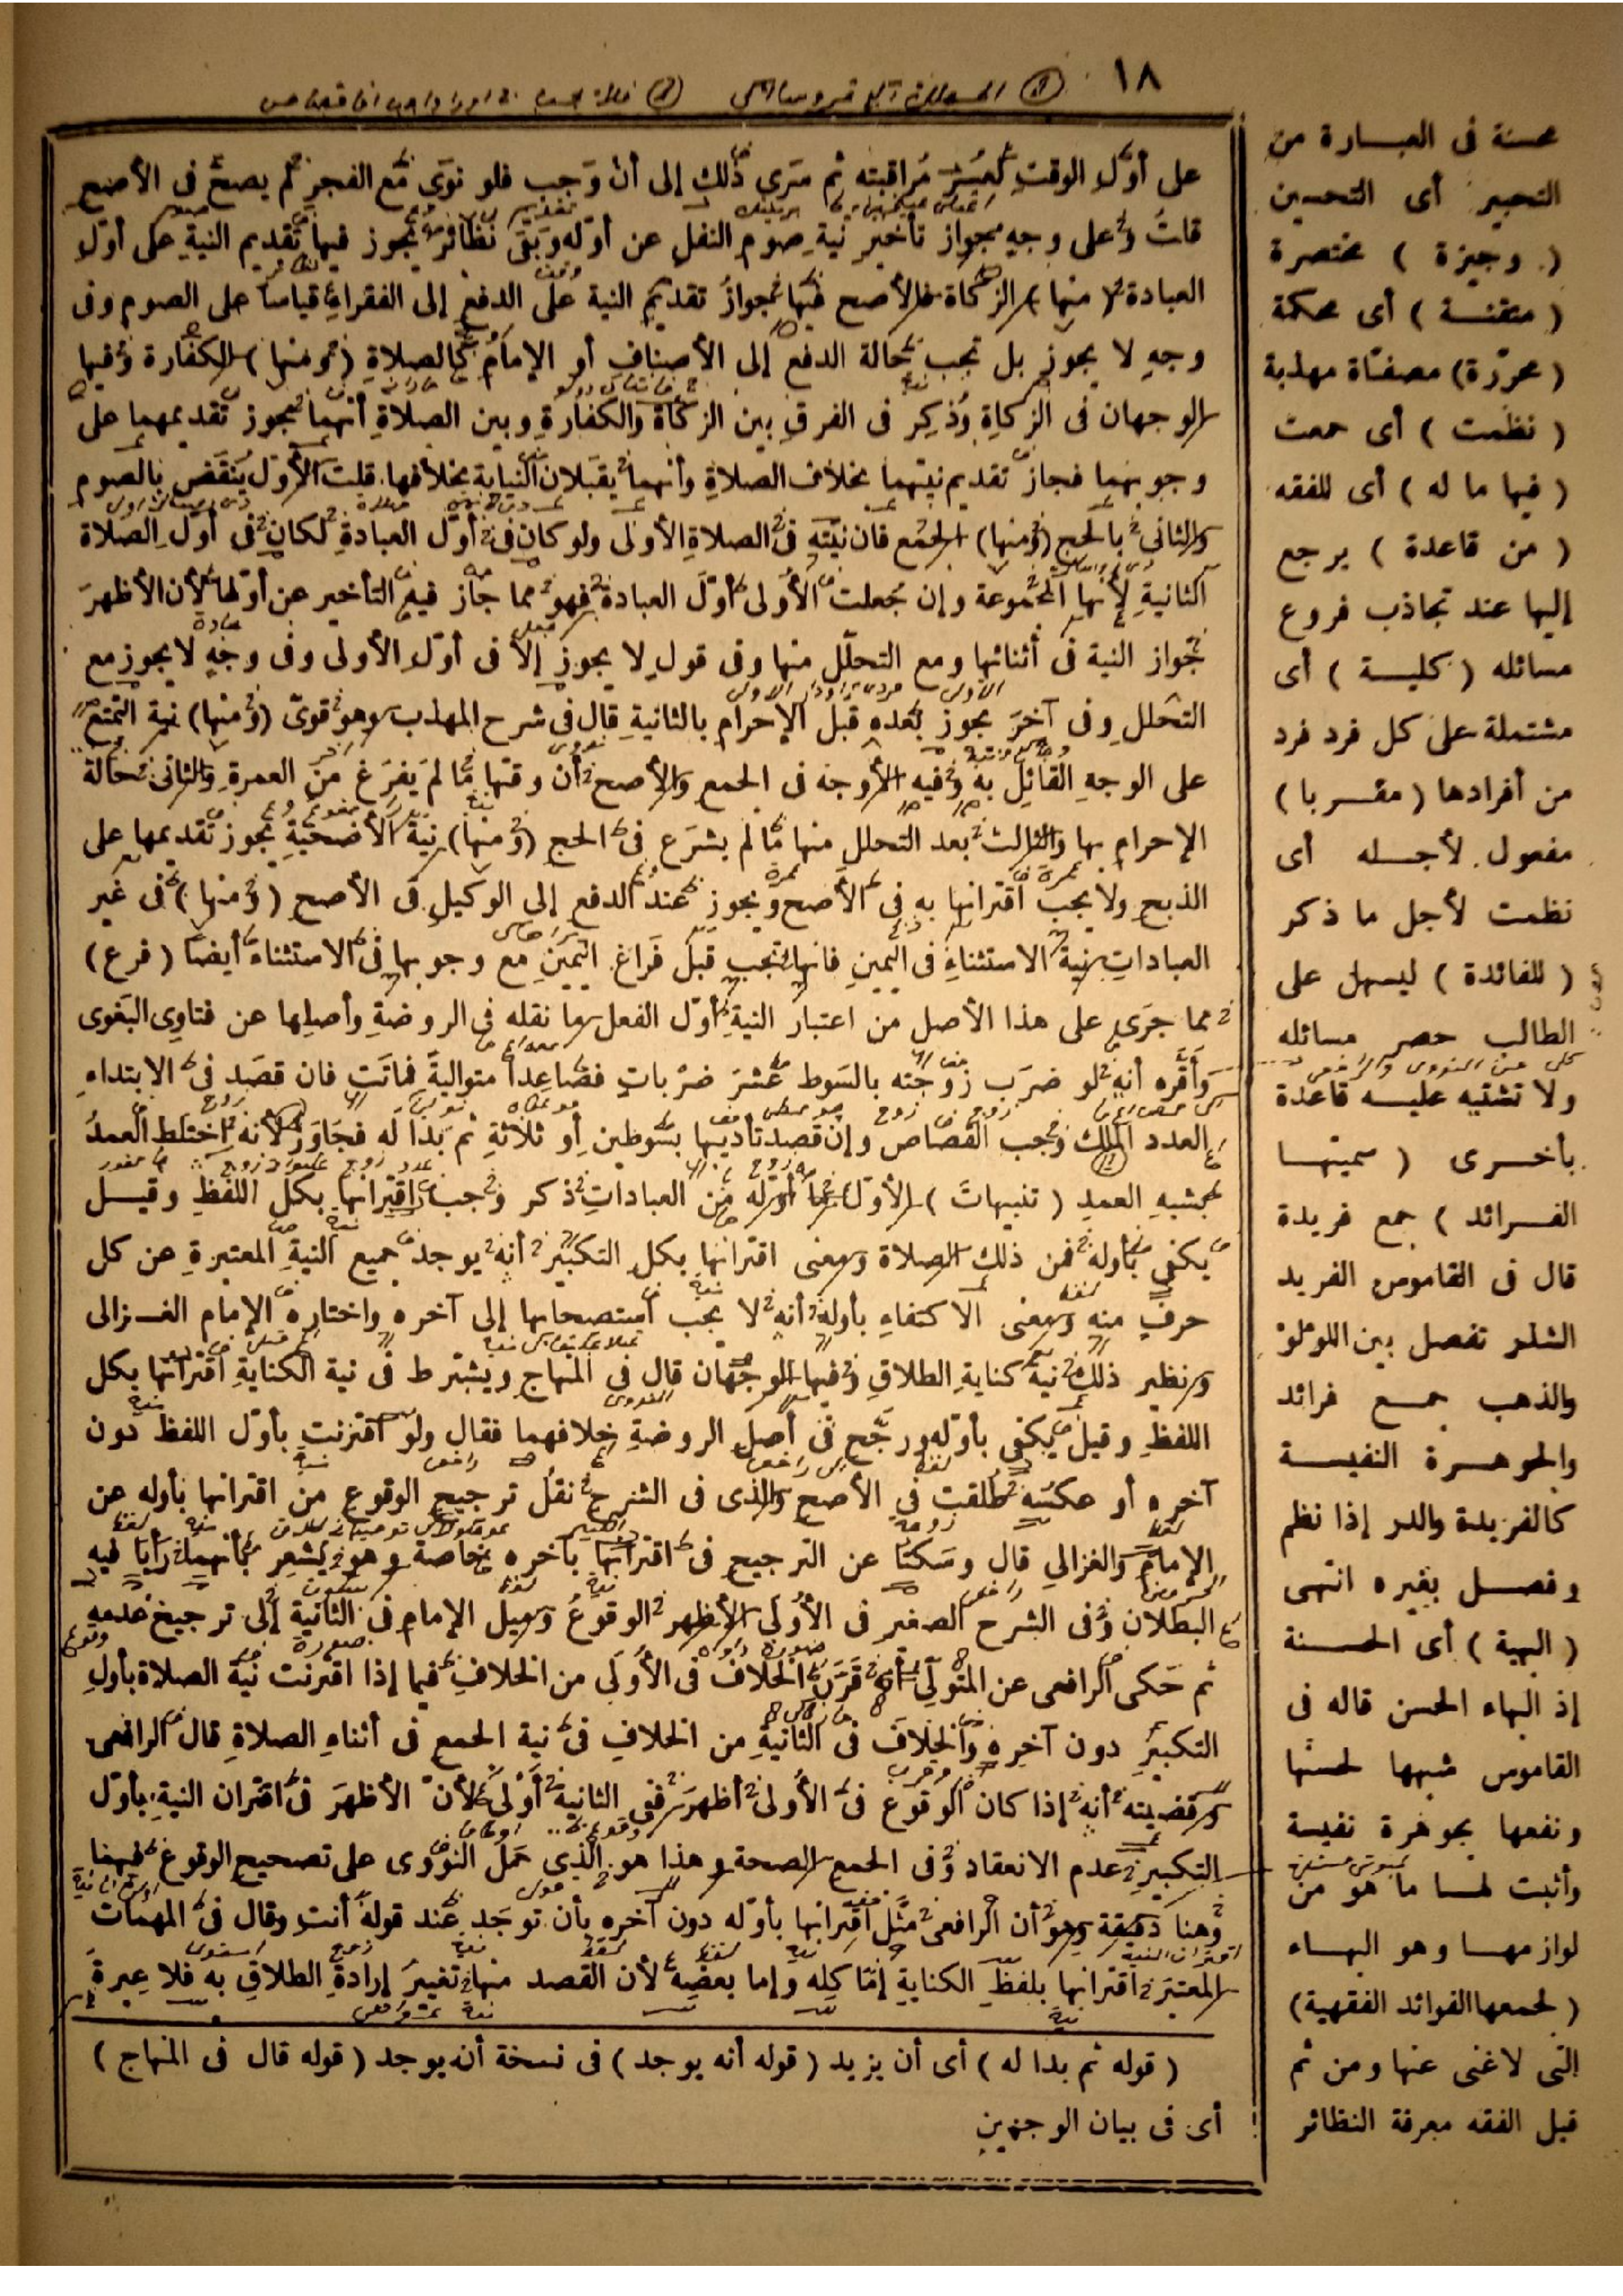 ١٨
على أوّلِ الوقتِ لعُسْرِ مُراقبته ثم سَرَى ذلك إلى أن وَجب فلو نوَى مع الفجرِ لم يصحَّ فى الأصح
قلتُ وعلى وجهٍ بجواز تأخير نية صوم النفل عن أوّله وبَقى نظائر يجوز فيها تقديم النيةِ على أوّل
العبادة (منها) الزكاة فالأصح فيها جوازُ تقديم النية على الدفع إلى الفقراء قياسا على الصوم وفى
وجهٍ لا يجوز بل تجب حالة الدفع إلى الأصناف أو الإمامُ كالصلاةِ (ومنها) الكفارة وفيها
الوجهان فى الزكاةِ وذُكِر فى الفرقِ بين الزكاة والكفارةِ وبين الصلاةِ أنهما يجوز تقديمهما على
وجوبهما فجاز تقديم نيتهما بخلاف الصلاةِ وأنهما يقبَلان النيابة بخلافها. قلت الأوّل يُنقَض بالصوم
والثانى بالحج (ومنها) الجمْع فان نيّته فى الصلاةِ الأولى ولو كان فى أوّل العبادةِ لكان فى أوّلِ الصلاة
الثانيةِ لأنها المجموعة وإن جُعلت الأُولى أوّلَ العبادة فهو مما جاز فيه التأخير عن أوّلها لأن الأظهرَ
جواز النية فى أثنائها ومع التحلّل منها وفى قولٍ لا يجوز إلا فى أوّلِ الأولى وفى وجْهٍ لا يجوز مع
التحللِ وفى آخرَ يجوز بعده قبل الإحرام بالثانيةِ قال فى شرح المهذب وهو قوىّ (ومنها) نية التمتع
على الوجهِ القائِل به وفيه الأوجه فى الجمع والأصح أن وقتها ما لم يَفرَغ من العمرةِ والثانى حالة
الإحرام بها والثالث بعد التحلل منها ما لم يشرَع فى الحج (ومنها) نية الأضحيةِ يجوز تقديمها على
الذبح ولا يجب اقترانها به فى الأصح ويجوز عند الدفع إلى الوكيلِ فى الأصح (ومنها) فى غير
العباداتِ نية الاستثناءِ فى اليمينِ فانها تجب قبل فَراغ اليمينِ مع وجوبها فى الاستثناء أيضا (فرع)
مما جرَى على هذا الأصل من اعتبار النية أوّل الفعل ما نقله فى الروضةِ وأصلِها عن فتاوِى البَغوى
وأقَرَّه أنه لو ضرَب زوجته بالسَوط عَشرَ ضرْباتٍ فصَاعِدا متوالية فماتَت فان قصَد فى الابتداءِ
العدد المُهلِك وَجب القصَاص وإن قصد تأديبها بسَوطين أو ثلاثةٍ ثم بَدا له فجَاوَز لأنه اختلط العمدُ
بشبهِ العمدِ (تنبيهاتَ) الأوّل ما أوّله من العباداتِ ذكر وَجب اقترانها بكل اللفظِ وقيل
يكفى بأوله فمن ذلك الصلاة ومعنى اقترانها بكل التكبير أنه يوجد جميع النيةِ المعتبرةِ عن كل
حرفٍ منه ومعنى الاكتفاءِ بأوله أنه لا يجب استصحابها إلى آخره واختاره الإمام الغزالى
ونظير ذلك نية كنايةِ الطلاقِ وفيها الوجهان قال فى المنهاج ويشترط فى نية الكنايةِ اقترانها بكل
اللفظِ وقيل يكفى بأوّله ورجّح فى أصلِ الروضةِ خلافهما فقال ولو اقترنت بأوّل اللفظ دون
آخره أو عكسَه طَلقت فى الأصح والذى فى الشرح نقلُ ترجيح الوقوع من اقترانها بأوله عن
الإمام والغزالى قال وسَكتَا عن الترجيح فى اقترانها بآخره خاصة وهو يُشعر بأنهما رَأيَا فيه
البطلان وفى الشرح الصغير فى الأُولى الأظهر الوقوعُ وميل الإمام فى الثانية إلى ترجيح عدمه
ثم حَكى الرافعى عن المتولّى أنه قَرَن الخلافَ فى الأُولَى من الخلافِ فيما إذا اقترنت نية الصلاة بأولِ
التكبيرِ دون آخرِهِ والخلافَ فى الثانيةِ من الخلافِ فى نية الجمع فى أثناءِ الصلاةِ قال الرافعى
وقضيته أنه إذا كان الوقوع فى الأُولى أظهرَ ففى الثانية أَوْلى لأن الأظهرَ فى اقتران النيةِ بأوّل
التكبيرِ عدم الانعقاد وفى الجمع الصحة وهذا هو الذى حَمَلَ النوَوى على تصحيح الوقوع فيهما
وهنا دقيقة وهو أن الرافعى مَثَّل اقترانها بأوّله دون آخرِه بأن توجَد عند قوله أنتِ وقال فى المهمات
المعتبَر اقترانها بلفظ الكنايةِ إمّا كلِه وإما بعضِه لأن القصد منها تغييرَ إرادةِ الطلاقِ به فلا عِبرةَ
(قوله ثم بدا له) أى أن يزيد (قوله أنه يوجد) فى نسخة أن يوجد (قوله قال فى المنهاج)
أى فى بيان الوجهين
محسنة فى العبارة من
التحبير أى التحسين
(وجيزة) مختصرة
(متقنة) أى محكمة
(محرّرة) مصفّاة مهذبة
(نظمت) أى جمعت
(فيها ما له) أى للفقه
(من قاعدة) يرجع
إليها عند تجاذب فروع
مسائله (كلية) أى
مشتملة على كل فرد فرد
من أفرادها (مقربا)
مفعول لأجله أى
نظمت لأجل ما ذكر
(للفائدة) ليسهل على
الطالب حصر مسائله
ولا تشتبه عليه قاعدة
بأخرى (سميتها
الفرائد) جمع فريدة
قال فى القاموس الفريد
الشذر تفصل بين اللؤلؤ
والذهب جمع فرائد
والجوهرة النفيسة
كالفريدة والدر إذا نظم
وفصل بغيره انتهى
(البهية) أى الحسنة
إذ البهاء الحسن قاله فى
القاموس شبهها لحسنها
ونفعها بجوهرة نفيسة
وأثبت لها ما هو من
لوازمها وهو البهاء
(لجمعها الفوائد الفقهية)
التى لا غنى عنها ومن ثم
قيل الفقه معرفة النظائر